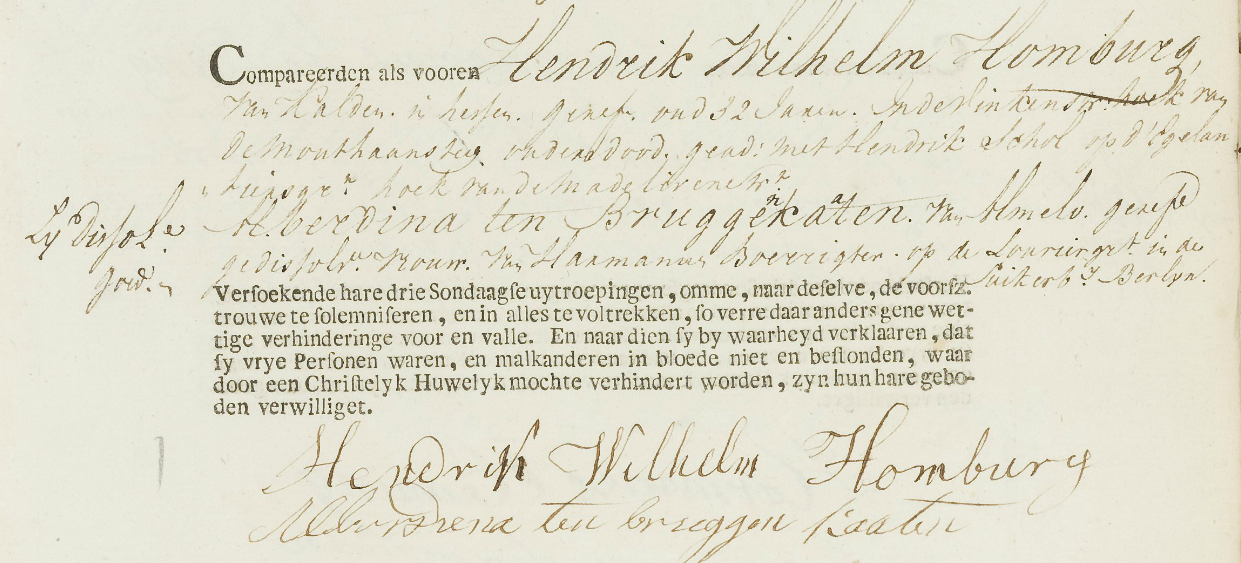 Compareerden als vooren Hendrik Wilhelm Homburg,
Van Halden. in hessen. geref. oud 32 Jaren. In de Vinkenstr. hoek van
De Mouthaansteeg ouders dood. gead: met Hendrik Schol op d'Egelan
tiersgr.t hoek van de Madelievenstr.t
& Alberdina ten Bruggenkaten. Van Almelo. geref.d
gedissolv.e Vrouw. Van Harmanus Boerrigter. op de Lauriergr.t in de
Suikerb.y Berlyn.
Ly dissol.e
goed.
Versoekende hare drie Sondaagse uytroepingen, omme, naar deselve, de voorsz.
trouwe te solemniseren, en in alles te voltrekken, so verre daar anders gene wet-
tige verhinderinge voor en valle. En naar dien sy by waarheyd verklaaren, dat
sy vrye Personen waren, en malkanderen in bloede niet en bestonden, waar
door een Christelyk Huwelyk mochte verhindert worden, zyn hun hare gebo-
den verwilliget.
Hendrik Wilhelm Homburg
Alberdiena ten brüggen kaaten